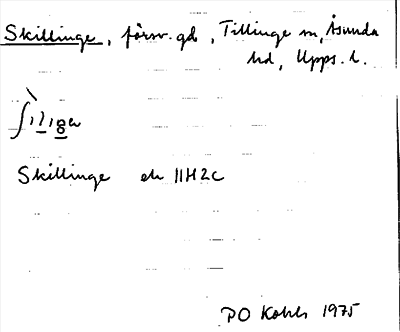 Skillinge, försv. gd, Tillinge sn, Åsunda
hd, Upps. l.
Skillinge ek 11H2c
PO Kohls 1975